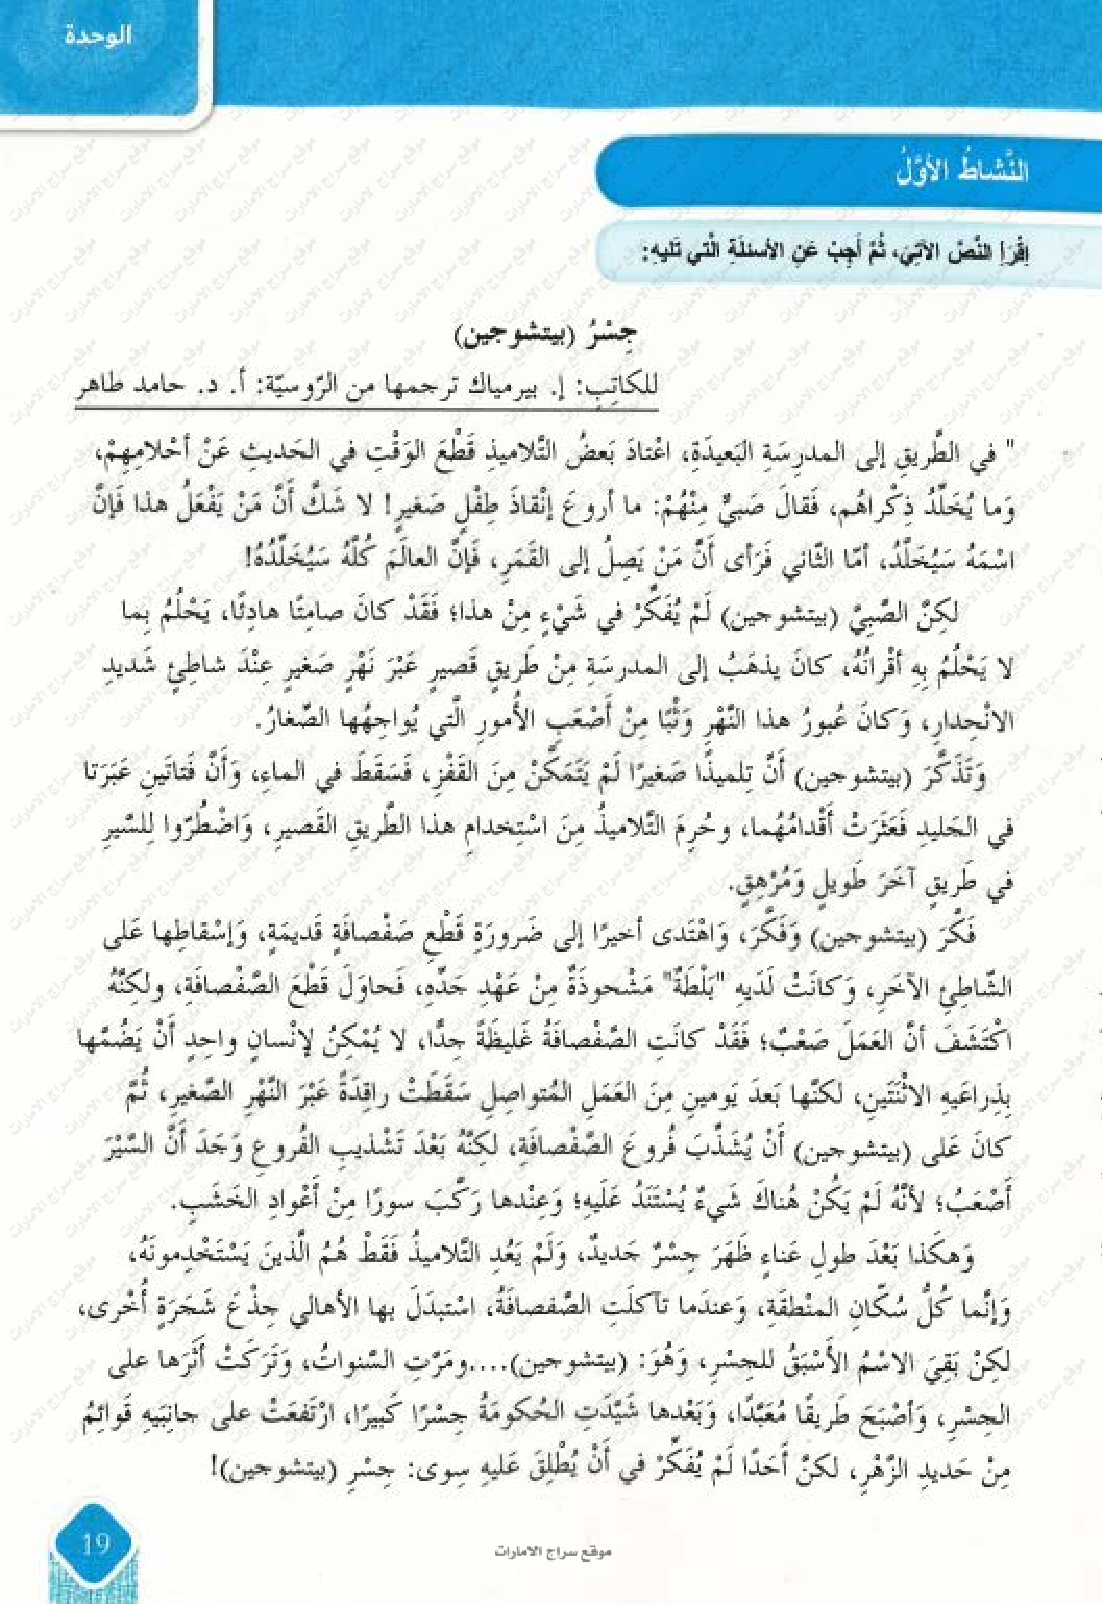 الوحدة
النَّشاطُ الأوَّلُ
اِقْرَأِ النَّصَّ الآتِيَ، ثُمَّ أَجِبْ عَنِ الأسئلَةِ الَّتي تَليهِ:
جِسْرُ (بيتشوجين)
للكاتِبِ: إ. بيرمياك ترجمها من الرّوسيّة: أ. د. حامد طاهر
" في الطَّريقِ إلى المدرسَةِ البَعيدَةِ، اعْتادَ بَعضُ التَّلاميذِ قَطْعَ الوَقْتِ في الحَديثِ عَنْ أحْلامِهِمْ،
وَما يُخَلِّدُ ذِكْراهُم، فَقالَ صَبيٌّ مِنْهُمْ: ما أروعَ إنْقاذَ طِفْلٍ صَغيرٍ! لا شَكَّ أَنَّ مَنْ يَفْعَلُ هذا فَإنَّ
اسْمَهُ سَيُخَلَّدُ، أمّا الثّاني فَرَأى أَنَّ مَنْ يَصِلُ إلى القَمَرِ، فَإنَّ العالَمَ كُلَّهُ سَيُخَلِّدُهُ!
لكِنَّ الصَّبِيَّ (بيتشوجين) لَمْ يُفَكِّرْ في شَيْءٍ مِنْ هذا؛ فَقَدْ كانَ صامِتًا هادِئًا، يَحْلُمُ بِما
لا يَحْلُمُ بِهِ أقْرانُهُ، كانَ يذهَبُ إلى المدرسَةِ مِنْ طَريقٍ قَصيرٍ عَبْرَ نَهْرٍ صَغيرٍ عِنْدَ شاطِئٍ شَديدِ
الانْحِدارِ، وَكانَ عُبورُ هذا النَّهْرِ وَثْبًا مِنْ أَصْعَبِ الأُمورِ الَّتي يُواجِهُها الصِّغارُ.
وَتَذَكَّرَ (بيتشوجين) أَنَّ تِلميذًا صَغيرًا لَمْ يَتَمَكَّنْ مِنَ القَفْزِ، فَسَقَطَ في الماءِ، وَأَنَّ فَتاتَينِ عَبَرَتا
في الجَليدِ فَعَثَرَتْ أَقْدامُهُما، وحُرِمَ التَّلاميذُ مِنَ اسْتِخدامِ هذا الطَّريقِ القَصيرِ، وَاضْطُرّوا لِلسَّيرِ
في طَريقٍ آخَرَ طَويلٍ وَمُرْهِقٍ.
فَكَّرَ (بيتشوجين) وَفَكَّرَ، وَاهْتَدى أخيرًا إلى ضَرورَةِ قَطْعِ صَفْصافَةٍ قَديمَةٍ، وَإسْقاطِها عَلى
الشّاطِئِ الآخَرِ، وَكانَتْ لَدَيهِ "بَلْطَةٌ" مَشْحوذَةٌ مِنْ عَهْدِ جَدِّهِ، فَحاوَلَ قَطْعَ الصَّفْصافَةِ، ولكِنَّهُ
اكْتَشَفَ أنَّ العَمَلَ صَعْبٌ؛ فَقَدْ كانَتِ الصَّفْصافَةُ غَليظَةً جِدًّا، لا يُمْكِنُ لإنْسانٍ واحِدٍ أَنْ يَضُمَّها
بِذِراعَيهِ الاثْنَتَينِ، لكنَّها بَعدَ يَومينِ مِنَ العَمَلِ المُتواصِلِ سَقَطَتْ راقِدَةً عَبْرَ النَّهْرِ الصَّغيرِ، ثُمَّ
كانَ عَلى (بيتشوجين) أَنْ يُشَذِّبَ فُروعَ الصَّفْصافَةِ، لكِنَّهُ بَعْدَ تَشْذيبِ الفُروعِ وَجَدَ أَنَّ السَّيْرَ
أَصْعَبُ؛ لأنَّهُ لَمْ يَكُنْ هُناكَ شَيءٌ يُسْتَنَدُ عَلَيهِ؛ وَعِنْدها رَكَّبَ سورًا مِنْ أَعْوادِ الخَشَبِ.
وَهكَذا بَعْدَ طولِ عَناءٍ ظَهَرَ جِسْرٌ جَديدٌ، وَلَمْ يَعُدِ التَّلاميذُ فَقَطْ هُمُ الَّذينَ يَسْتَخْدِمونَهُ،
وَإنَّما كُلُّ سُكّانِ المنْطقَةِ، وَعندَما تآكلَتِ الصَّفصافَةُ، اسْتبدَلَ بها الأهالي جِذْعَ شَجَرَةٍ أُخْرى،
لكِنْ بَقِيَ الاسْمُ الأَسْبَقُ للجِسْرِ، وَهُوَ: (بيتشوجين)....ومَرَّتِ السَّنواتُ، وَتَرَكَتْ أَثَرَها على
الجِسْرِ، وَأصْبَحَ طَريقًا مُعَبَّدًا، وَبَعْدها شَيَّدَتِ الحُكومَةُ جِسْرًا كَبيرًا، ارْتَفعَتْ على جانِبَيهِ قَوائِمُ
مِنْ حَديدِ الزَّهْرِ، لكنَّ أَحَدًا لَمْ يُفَكِّرْ في أَنْ يُطْلِقَ عَليهِ سِوى: جِسْرِ (بيتشوجين)!
19
موقع سراج الامارات